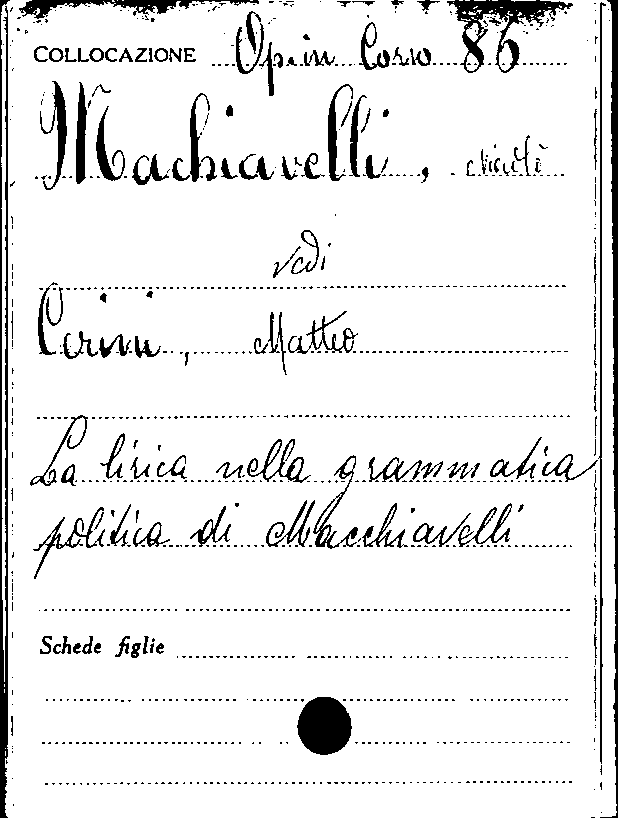 COLLOCAZIONE Op. in Corso 86
Machiavelli, Nicolò
vedi
Cerini, Matteo
La lirica nella grammatica
politica di Macchiavelli
Schede figlie